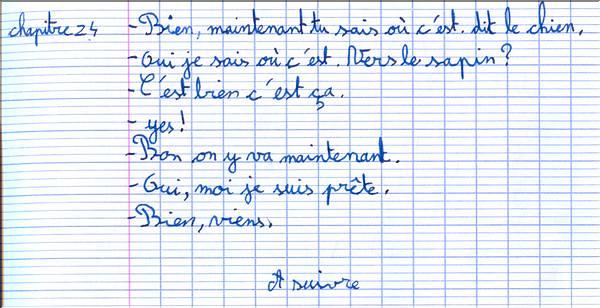 chapitre 24
- Bien, maintenant tu sais où c'est. dit le chien.
- Oui je sais où c'est. Vers le sapin ?
- C'est bien c'est ça.
- yes !
- Bon on y va maintenant.
- Oui, moi je suis prête.
- Bien, viens.
A suivre